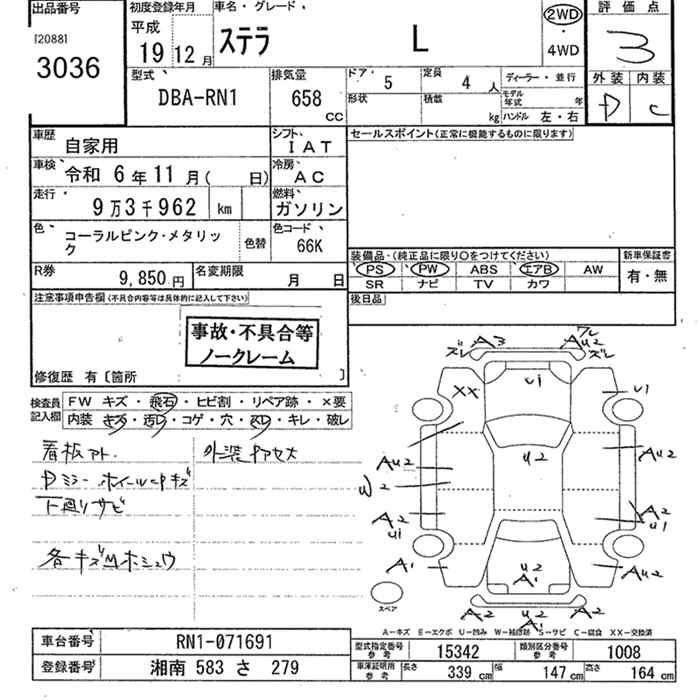 出品番号
[2088]
3036
初度登録年月
平成
19 12月
車名・グレード
ステラ L
2WD
・
4WD
評価点
3
外装 内装
D C
型式
DBA-RN1
排気量
658
CC
ドア・ 5
定員 4 人
形状
積載 kg
ディーラー・並行
モデル年式 年
ハンドル 左・右
車歴
自家用
シフト
IAT
車検
令和 6年 11月( 日)
冷房
AC
走行
9万3千962 km
燃料
ガソリン
色
コーラルピンク・メタリック
色替
色コード
66K
R券
9,850円
名変期限
月 日
セールスポイント(正常に機能するものに限ります)
装備品・(純正品に限り○をつけてください)
PS PW ABS エアB AW
SR ナビ TV カワ
新車保証書
有・無
後日品
注意事項申告欄(不具合内容等は具体的に記入して下さい)
事故・不具合等
ノークレーム
修復歴 有〔箇所 〕
検査員
記入欄
FW キズ・飛石・ヒビ割・リペア跡・×要
内装 キズ・汚レ・コゲ・穴・スレ・キレ・破レ
看板アト.
外装中アセス
Dミラー ホイールcapキズ
下廻りサビ
各キズMホシュウ
ズレ A3
フレ
AU2
ズレ
XX
U1
U1
U2
AU2
AU2
W2
A2
U1
A2
U1
A1
U2
A1
AU2
A2
U2
A1
A2
スペア
A-キズ E-エクボ U-凹み W-補修跡 S-サビ C-腐食 XX-交換済
車台番号
RN1-071691
登録番号
湘南 583 さ 279
型式指定番号
参考
15342
類別区分番号
参考
1008
車庫証明用
参考
長さ 339 cm
幅 147 cm
高さ 164 cm